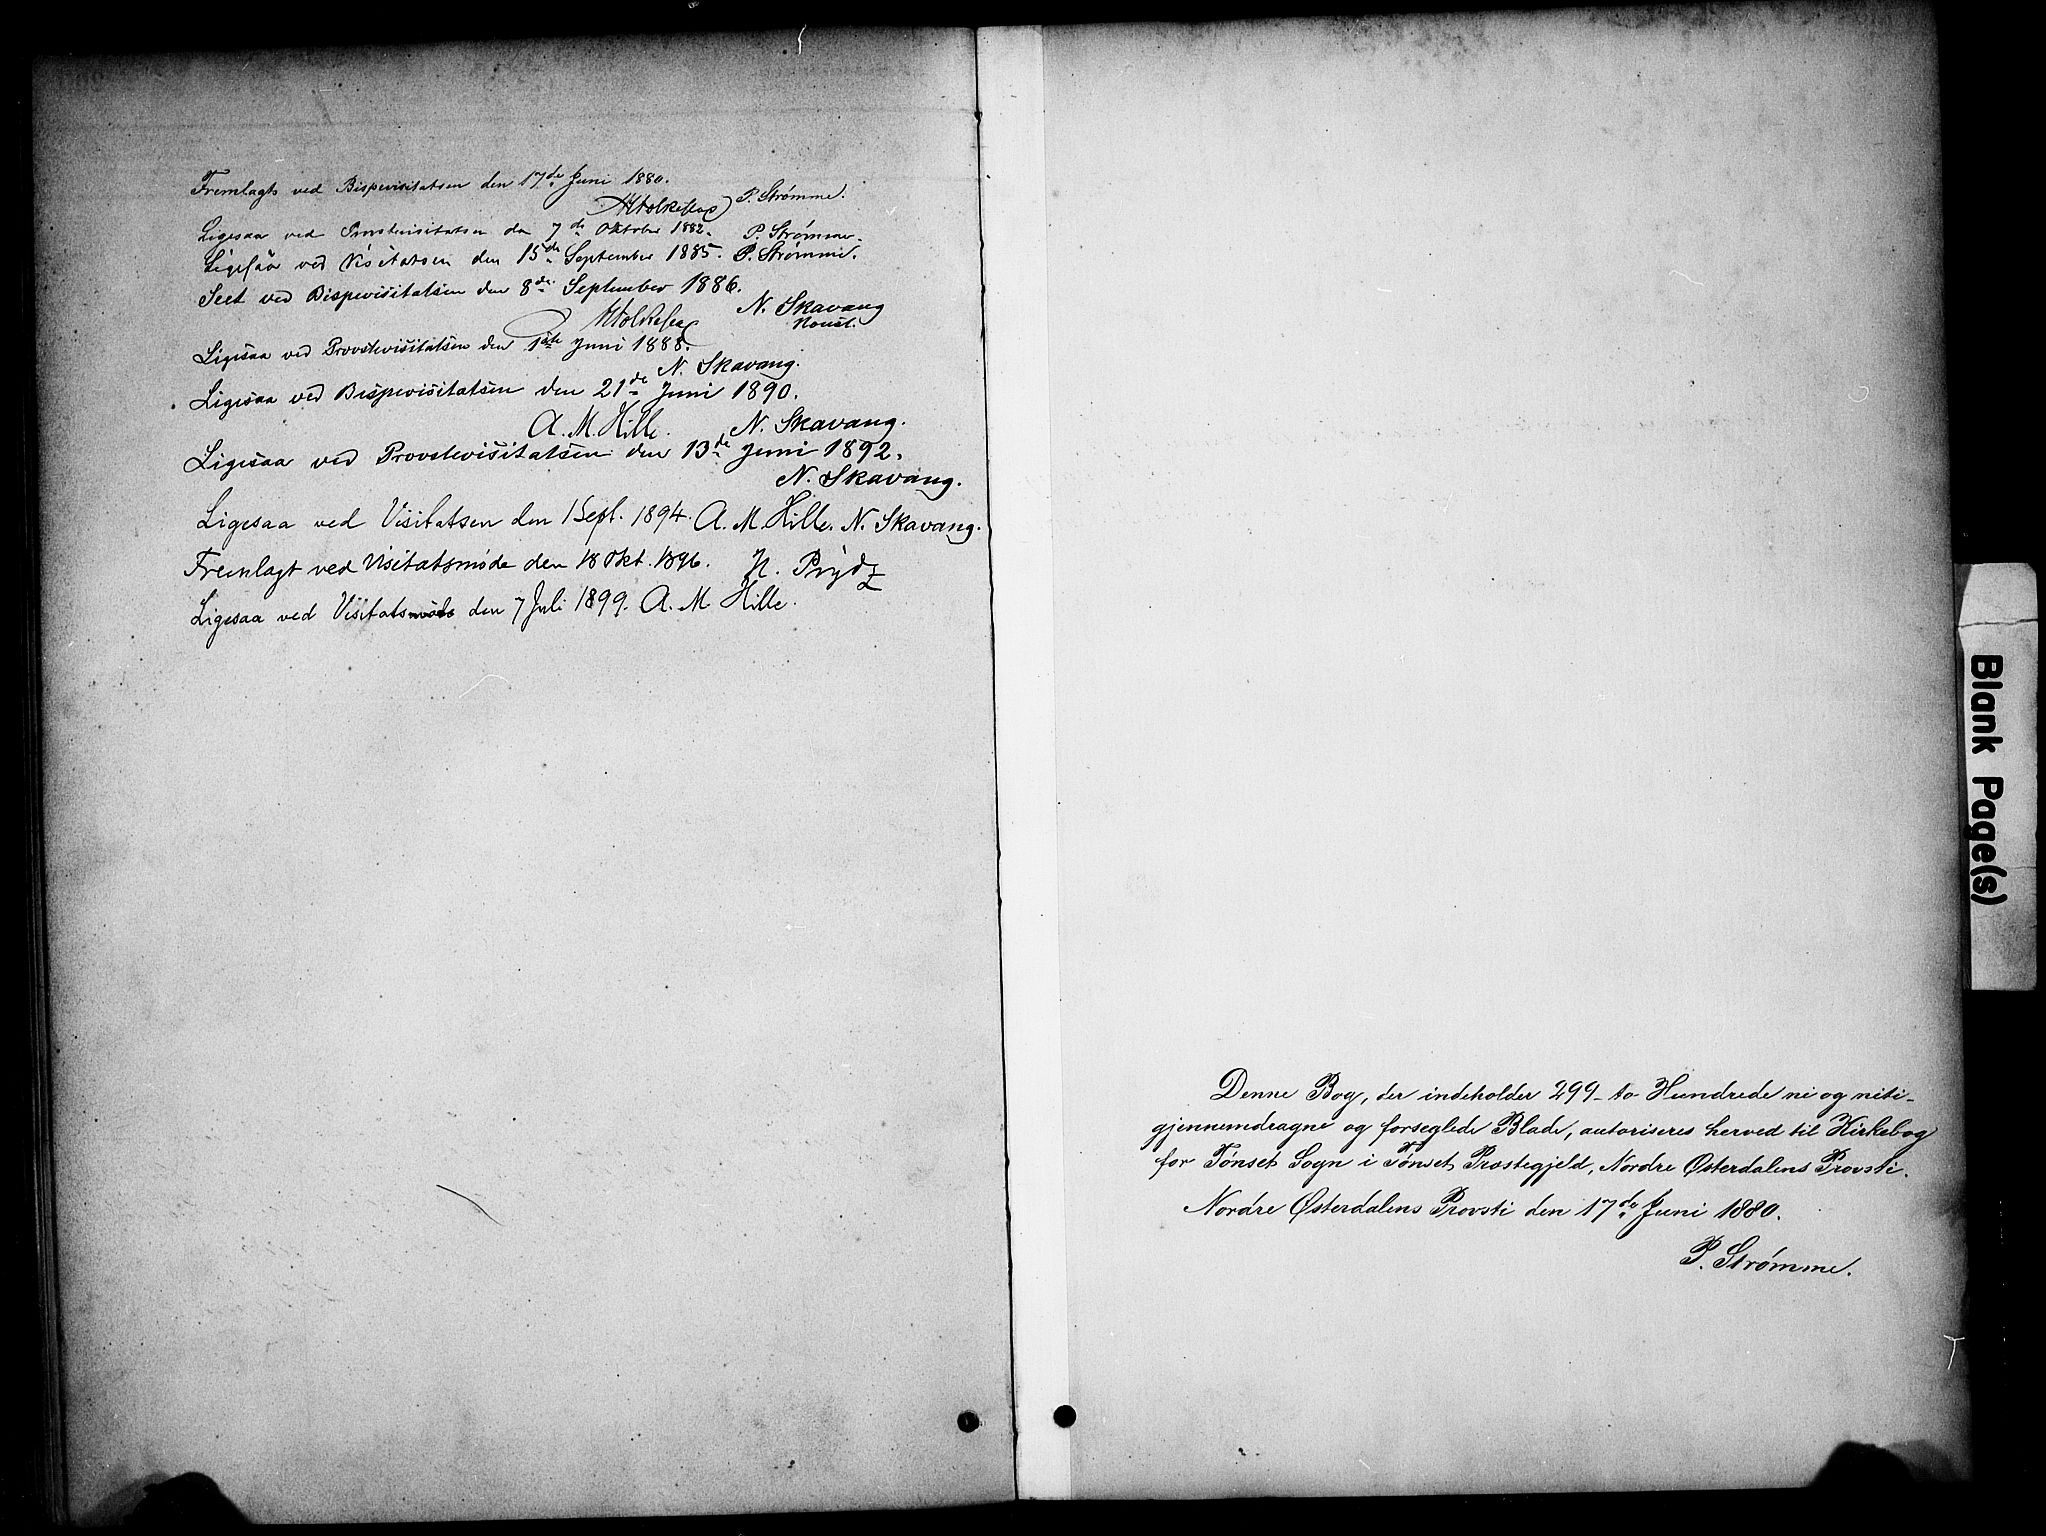 Fremlagts ved Bispevisitatsen den 17de Juni 1880.
P. Strømme.
Ligesaa ved Provstevisitatsen den 7de Oktober 1882. P. Strømme.
Ligesaa ved Visitatsen den 15de September 1885. P. Strømme.
Seet ved Bispevisitatsen den 8de September 1886.
N. Skavang
Konst.
Ligesaa ved Provstevisitatsen den 1ste Juni 1888.
N. Skavang.
Ligesaa ved Bispevisitatsen den 21de Juni 1890.
A. M. Hille. N. Skavang.
Ligesaa ved Provstevisitatsen den 13de Juni 1892.
N. Skavang.
Ligesaa ved Visitatsen den 1 Sept. 1894. A. M. Hille. N. Skavang.
Fremlagt ved Visitatsmøde den 18 Okt. 1896. H. Prydz
Ligesaa ved Visitatsmøde den 7 Juli 1899. A. M. Hille.
Denne Bog, der indeholder 299 - to Hundrede ni og niti -
gjennemdragne og forseglede Blade, autoriseres herved til Kirkebog
for Tønset Sogn i Tønset Præstegjeld, Nordre Østerdalens Provsti.
Nordre Østerdalens Provsti den 17de Juni 1880.
P. Strømme.
Blank Page(s)